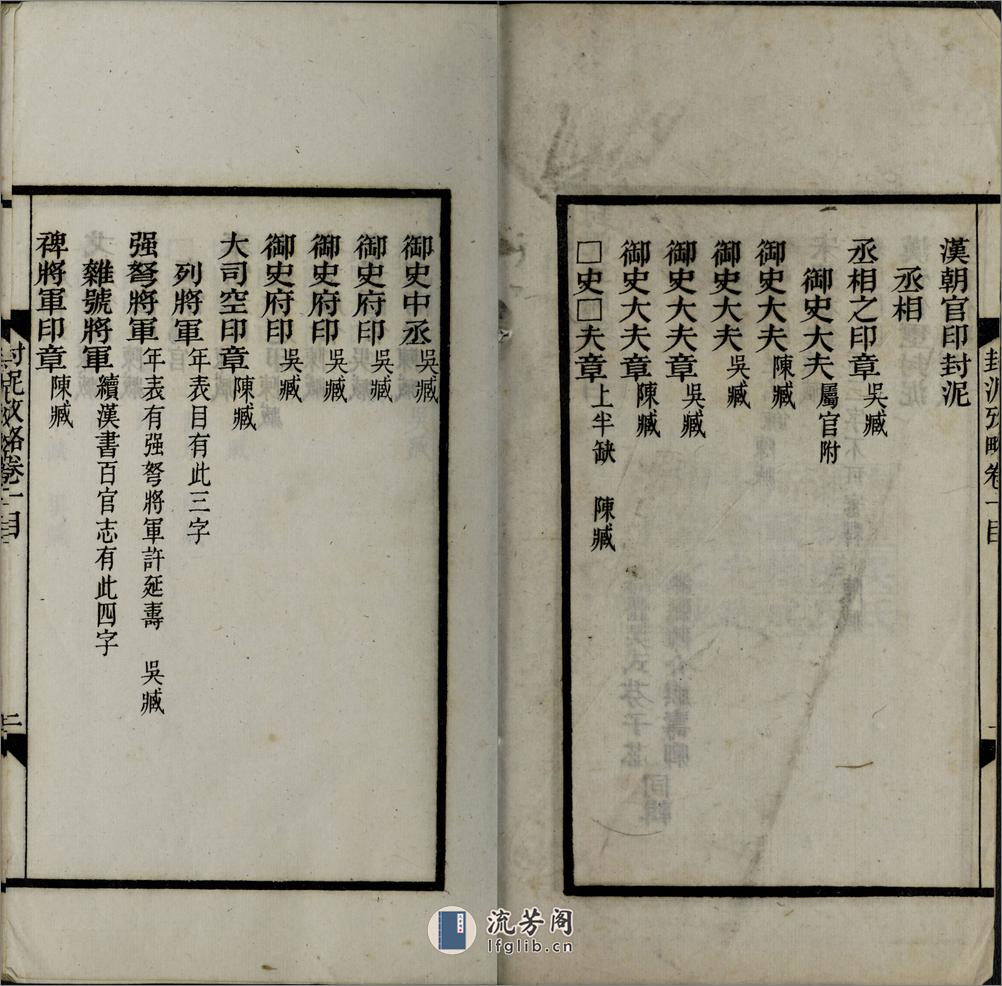 漢朝官印封泥
丞相
丞相之印章 吳臧
御史大夫 屬官附
御史大夫 陳臧
御史大夫 吳臧
御史大夫章 吳臧
御史大夫章 陳臧
□史□夫章 上半缺 陳臧
封泥攷略卷一目
御史中丞 吳臧
御史府印 吳臧
御史府印 吳臧
御史府印 吳臧
大司空印章 陳臧
列將軍 年表目有此三字
强弩將軍 年表有强弩將軍許延壽 吳臧
雜號將軍 續漢書百官志有此四字
裨將軍印章 陳臧
封泥攷略卷一目
二
流芳阁
lfglib.cn